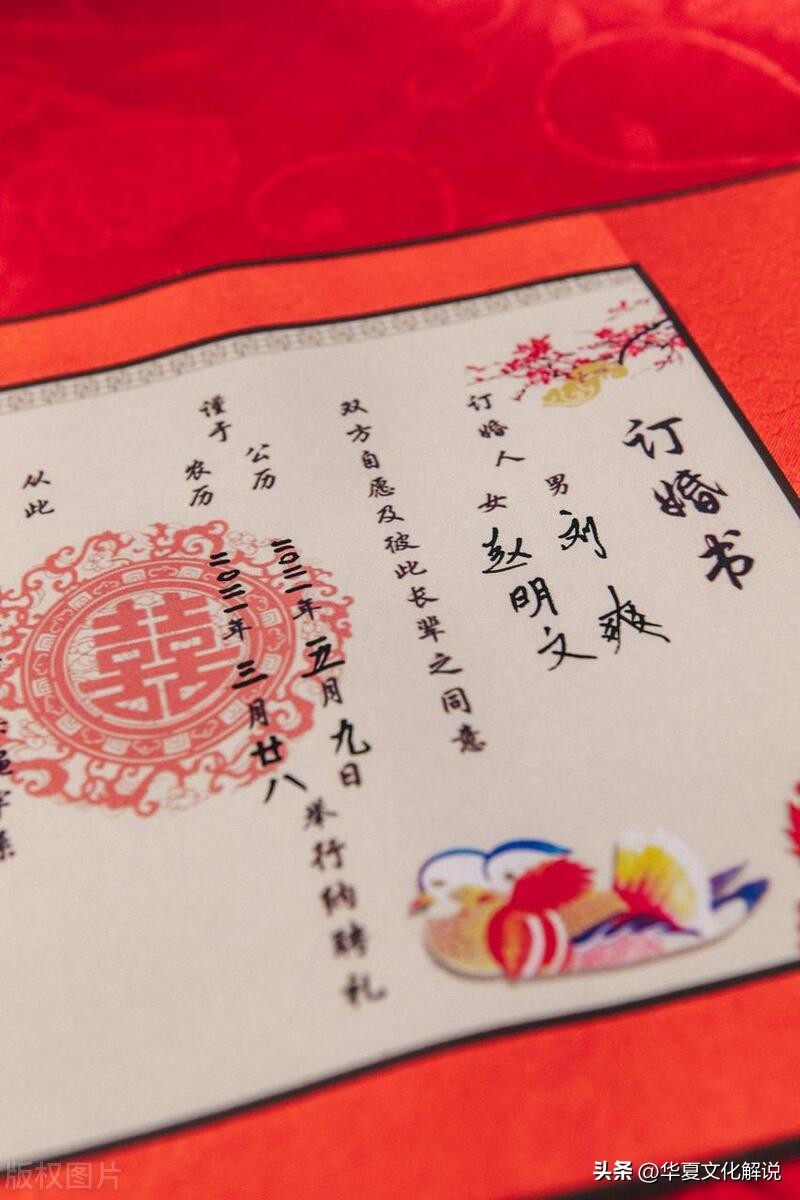 订婚书
订婚人
男 刘爽
女 赵明文
双方自愿及彼此长辈之同意
谨于
公历 二〇二一年五月九日
农历 二〇二一年三月廿八
举行纳聘礼
从此
囍
版权图片
头条 @华夏文化解说